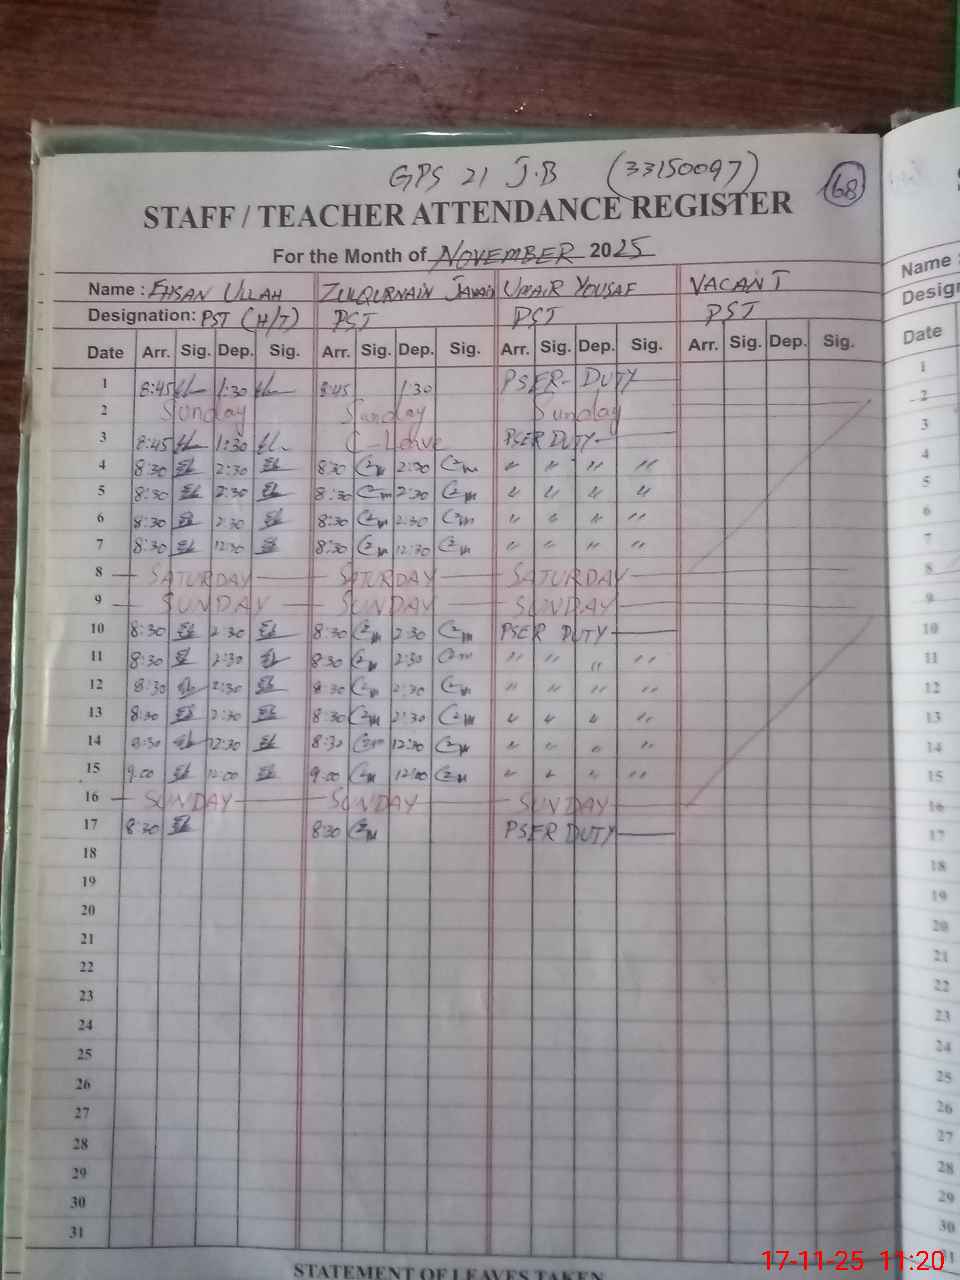 GPS 21 J.B (33150097) 68
STAFF / TEACHER ATTENDANCE REGISTER
For the Month of NOVEMBER 2025
Name : EHSAN ULLAH ZULQURNAIN JAWAD UMAIR YOUSAF VACANT Name :
Designation: PST (H/T) PST PST PST
Date Arr. Sig. Dep. Sig. Arr. Sig. Dep. Sig. Arr. Sig. Dep. Sig. Arr. Sig. Dep. Sig. Date
1 8:45 1:30 8:45 1:30 PSER- DUTY 1
2 Sunday Sunday Sunday 2
3 8:45 1:30 C-Leave PSER DUTY 3
4 8:30 2:30 8:30 2:30 " " " " 4
5 8:30 2:30 8:30 2:30 " " " " 5
6 8:30 2:30 8:30 2:30 " " " " 6
7 8:30 12:30 8:30 12:30 " " " " 7
8 SATURDAY SATURDAY SATURDAY 8
9 SUNDAY SUNDAY SUNDAY 9
10 8:30 2:30 8:30 2:30 PSER DUTY 10
11 8:30 2:30 8:30 2:30 " " " " 11
12 8:30 2:30 8:30 2:30 " " " " 12
13 8:30 2:30 8:30 2:30 " " " " 13
14 8:30 12:30 8:30 12:30 " " " " 14
15 9:00 12:00 9:00 12:00 " " " " 15
16 SUNDAY SUNDAY SUNDAY 16
17 8:30 8:30 PSER DUTY 17
18 18
19 19
20 20
21 21
22 22
23 23
24 24
25 25
26 26
27 27
28 28
29 29
30 30
31
STATEMENT OF LEAVES TAKEN
17-11-25 11:20